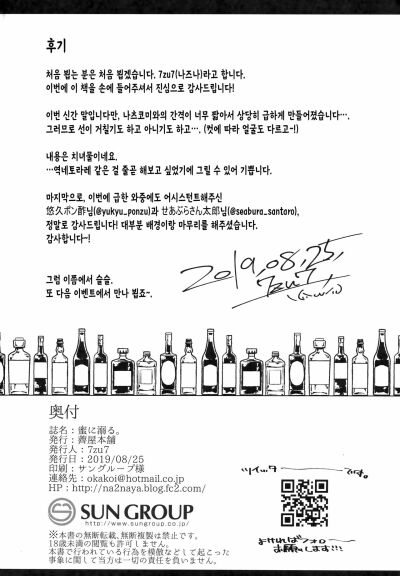 후기
처음 뵙는 분은 처음 뵙겠습니다. 7zu7(나즈나)라고 합니다.
이번에 이 책을 손에 들어주셔서 진심으로 감사드립니다!
이번 신간 말입니다만, 나츠코미와의 간격이 너무 짧아서 상당히 급하게 만들어졌습니다….
그러므로 선이 거칠기도 하고 아니기도 하고…. (컷에 따라 얼굴도 다르고~!)
내용은 치녀물이네요.
…역네토라레 같은 걸 줄곧 해보고 싶었기에 그릴 수 있어 기쁩니다.
마지막으로, 이번에 급한 와중에도 어시스턴트해주신
悠久ポン酢님(@yukyu_ponzu)과 せあぶらさん太郎님(@seabura_santaro),
정말로 감사드립니다! 대부분 배경이랑 마무리를 해주셨습니다.
감사합니다~!
2019,08,25,
7zu7,
그럼 이쯤에서 슬슬.
또 다음 이벤트에서 만나 뵙죠~.
奥付
誌名：蜜に溺る。
発行：薺屋本舗
発行人：7zu7
発行日：2019/08/25
印刷：サングループ様
連絡先：okakoi@hotmail.co.jp
HP：http://na2naya.blog.fc2.com/
ツイッター
です。
SUN GROUP
http://www.sungroup.co.jp/
よければフォロー
お願いします!!!
※本書の無断転載、無断複製は禁止です。
18歳未満の閲覧も所持も許可しません。
本書で行われている行為を模倣などして起こった
事象に関して当方は一切の責任を負いません。